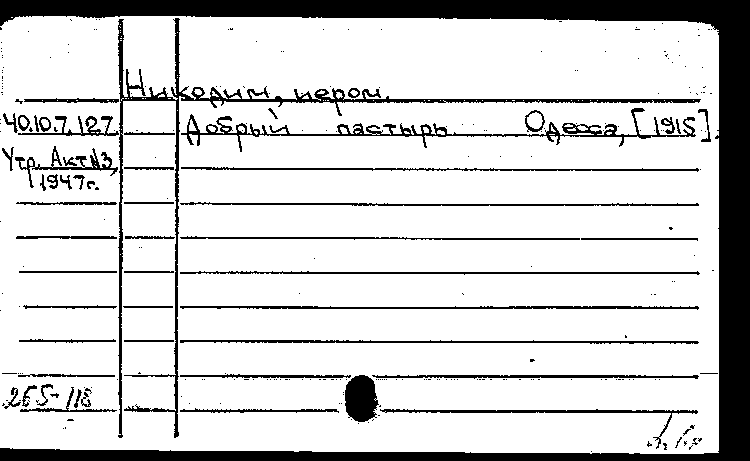 Никодим, иером.
40.10.7.127 Добрый пастырь. Одесса, [1915].
Утр. Акт №3,
1947г.
265-118